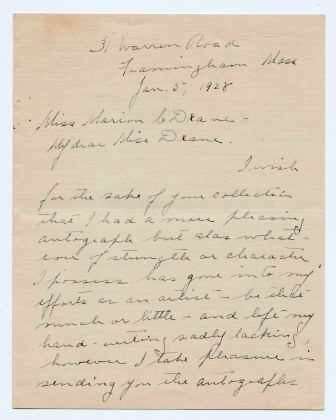 31 Warren Road
Framingham Mass
Jan. 5, 1928
Miss Marion C Deane -
My dear Miss Deane.
I wish
for the sake of your collection
that I had a more pleasing
autograph but alas what-
ever of strength or character
I possess has gone into my
efforts as an artist - be that
much or little - and left my
hand-writing sadly lacking,
however I take pleasure in
sending you the autographs